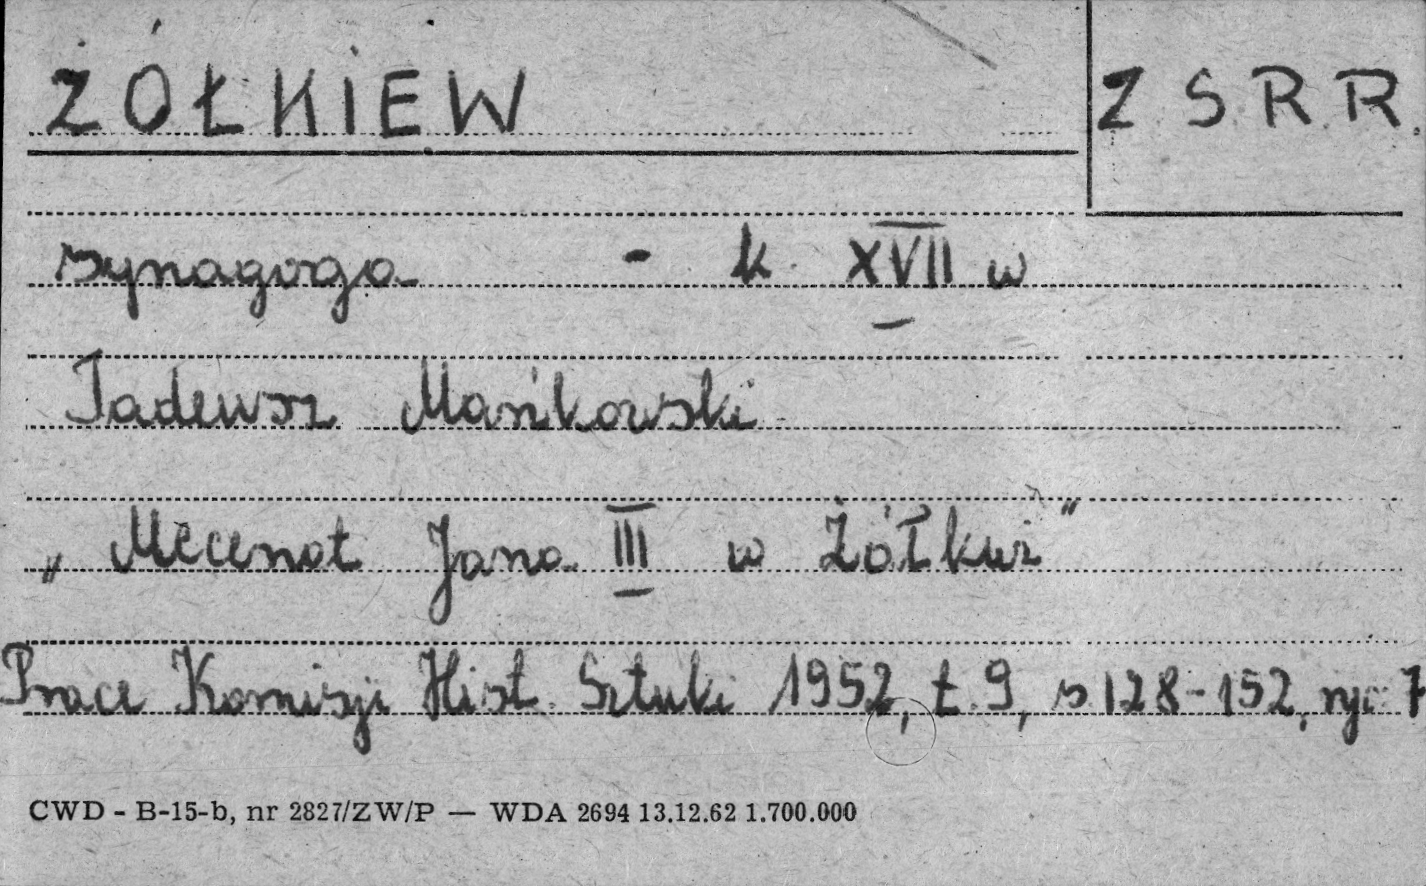 ŻÓŁKIEW
Z S R R.
synagoga - k. XVII w
Tadeusz Mańkowski
„Mecenat Jana III w Żółkwi"
Prace Komisji Hist. Sztuki 1952, t. 9, s. 128-152, ryc 7
CWD - B-15-b, nr 2827/ZW/P — WDA 2694 13.12.62 1.700.000